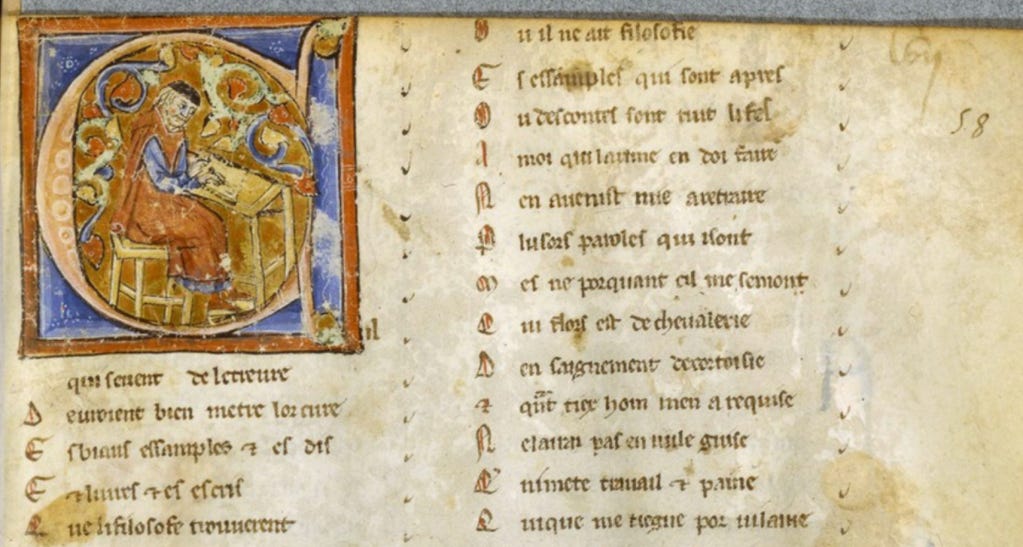 Cil
qui sevent de letreure
Devroient bien metre lor cure
Es biaus essamples et es dis
Et livres et es escris
Que li filosofe trouverent
Ou il ne ait filosofie
Es essamples qui sont apres
Ou des contes sont tuit li fel
A moi qui la rime en doi faire
N en avenist mie a retraire
Plusors paroles qui i sont
Mes ne porquant cil me semont
Qui flors est de chevalerie
D en saignement de cortoisie
Et quant tiex hom m en a requise
Ne lairai pas en nule guise
Qui mete travail et paine
Quique me tiegne por vilaine
58